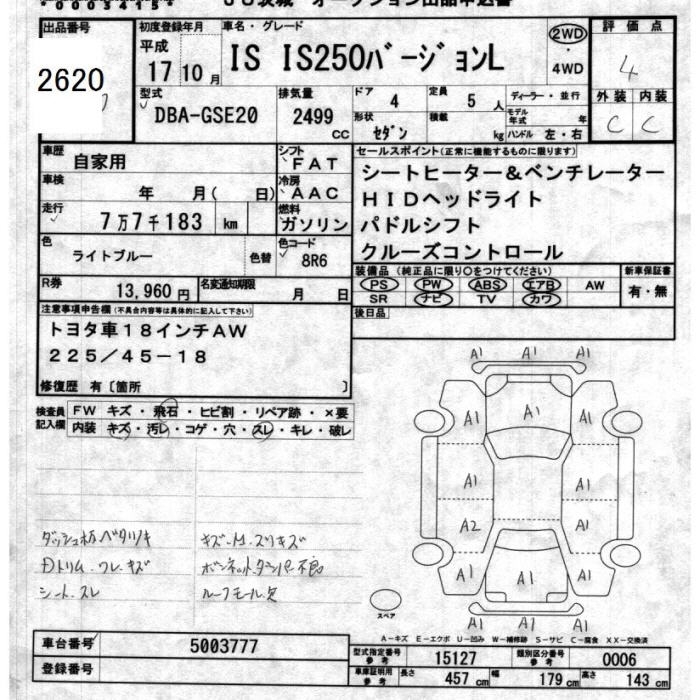 *00034154*
JU茨城 オークション出品申込書
出品番号
2620
初度登録年月
平成
17 10 月
車名・グレード
IS IS250バージョンL
2WD
・
4WD
評価点
4
外装 内装
C C
型式
DBA-GSE20
排気量
2499
CC
ドア
4
定員
5 人
形状
セダン
積載
kg
ディーラー・並行
モデル年式 年
ハンドル 左・右
車歴
自家用
シフト
FAT
車検
年 月( 日)
冷房
AAC
走行
7万7千183 km
燃料
ガソリン
色
ライトブルー
色替
色コード
8R6
R券
13,960円
名変通知期限
月 日
セールスポイント(正常に機能するものに限ります)
シートヒーター&ベンチレーター
HIDヘッドライト
パドルシフト
クルーズコントロール
装備品(純正品に限り○をつけてください)
PS PW ABS エアB AW
SR ナビ TV カワ
新車保証書
有・無
後日品
注意事項申告欄(不具合内容等は具体的に記入して下さい)
トヨタ車18インチAW
225/45-18
修復歴 有〔箇所 〕
検査員
記入欄
FW キズ・飛石・ヒビ割・リペア跡・×要
内装 キズ・汚レ・コゲ・穴・スレ・キレ・破レ
A1 A1 A1
A1 A1 A1
A1 A1
A2 A1
A1 A1 A1
A1 A1 A1
ダッシュ板ベタツキ
Dトリム.ワレ.キズ
シート.スレ
ボンネットダンパー不良
ルーフモール欠
スペア
A-キズ E-エクボ U-凹み W-補修跡 S-サビ C-腐食 XX-交換済
車台番号
5003777
登録番号
型式指定番号
参考
15127
類別区分番号
参考
0006
車庫証明用
参考
長さ
457 cm
幅
179 cm
高さ
143 cm